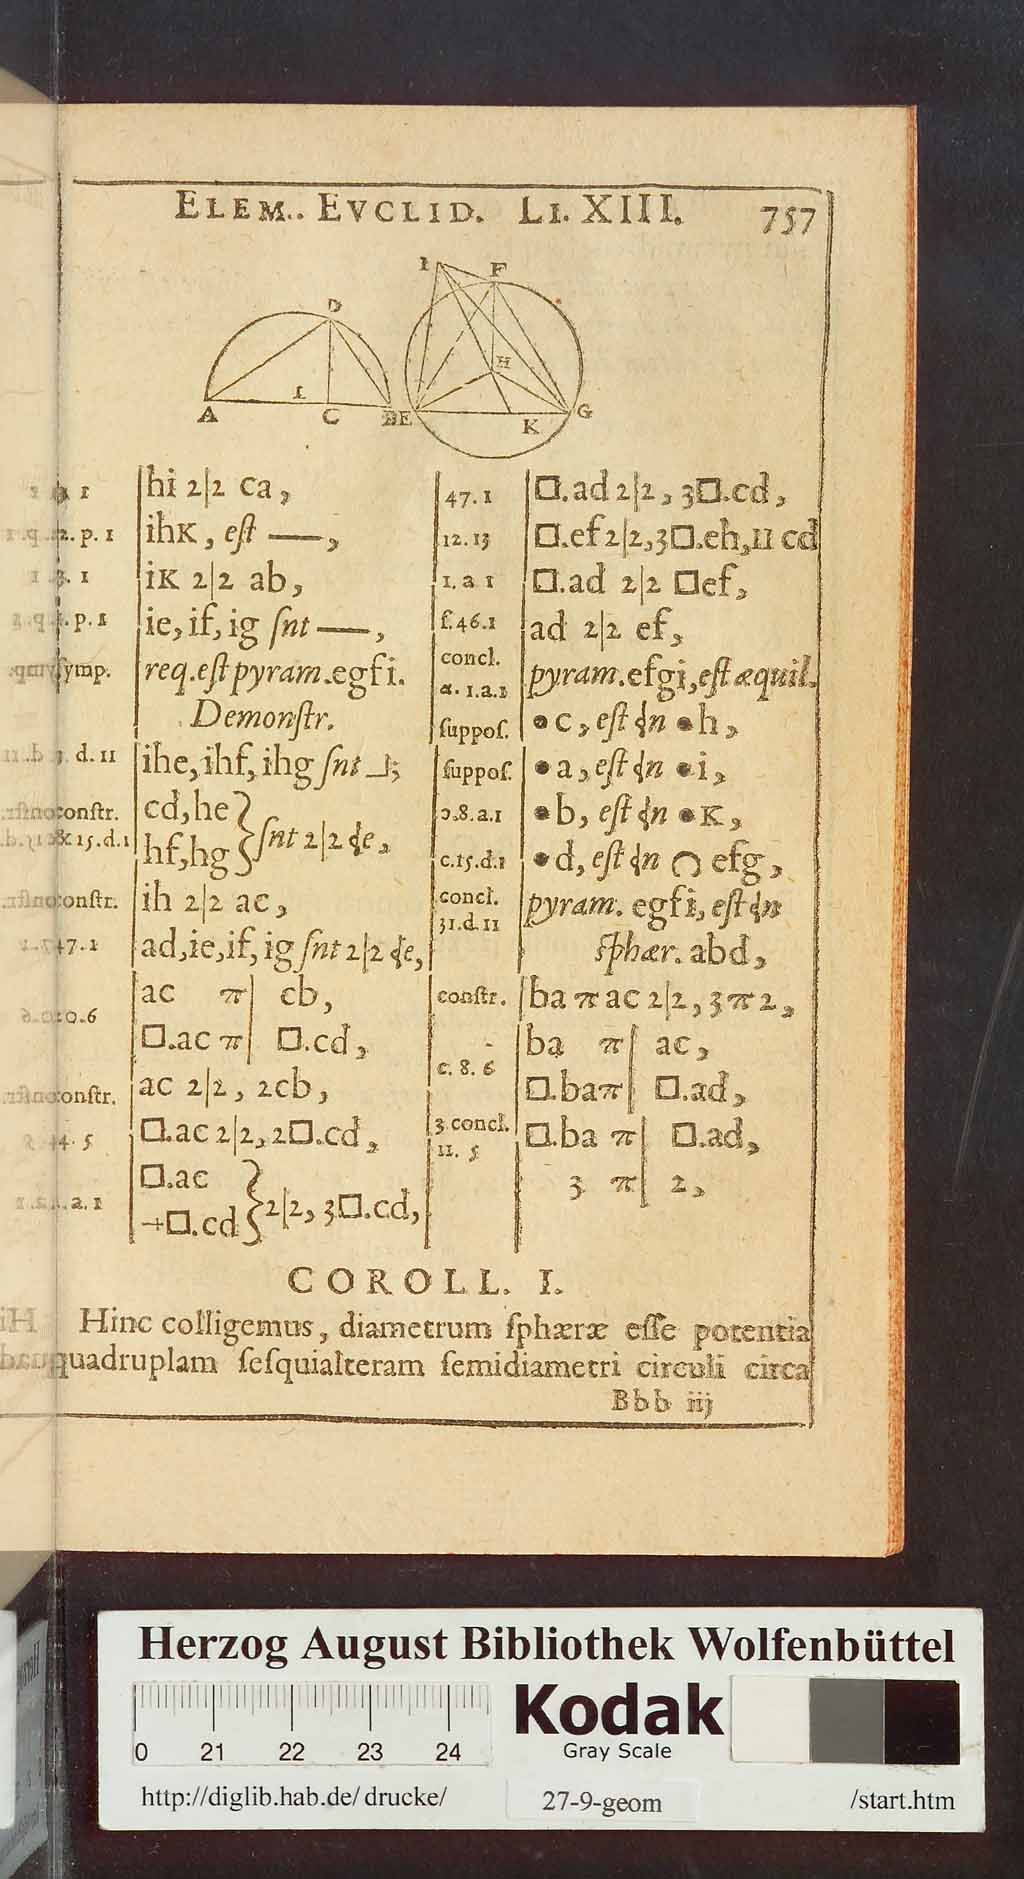 ELEM.. EVCLID. LI. XIII. 757
I F
D
H
I
A C B E K G
hi 2|2 ca,
ihK, eſt —,
2. p. 1
iK 2|2 ab,
ie, if, ig ſnt —,
p. 1
ſymp. req. eſt pyram. egfi.
Demonſtr.
d. 11 ihe, ihf, ihg ſnt ⅃;
conſtr. cd, he
& 15. d. 1 hf, hg } ſnt 2|2 de,
conſtr. ih 2|2 ac,
47. 1 ad, ie, if, ig ſnt 2|2 de,
ac π| cb,
□.ac π| □.cd,
conſtr. ac 2|2, 2cb,
□.ac 2|2, 2□.cd,
□.ac
a. 1 +□.cd } 2|2, 3□.cd,
47. 1 □.ad 2|2, 3□.cd,
12. 13 □.ef 2|2, 3□.eh, II cd
1. a 1 □.ad 2|2 □ef,
ſ. 46. 1 ad 2|2 ef,
concl.
α. 1. a. 1 pyram. efgi, eſt æquil.
ſuppoſ. •c, eſt in •h,
ſuppoſ. •a, eſt in •i,
ɔ. 8. a. 1 •b, eſt in •K,
c. 15. d. 1 •d, eſt in ∩ efg,
concl. pyram. egfi, eſt in
31. d. 11 ſphær. abd,
conſtr. ba π ac 2|2, 3 π 2,
ba π| ac,
c. 8. 6
□.ba π| □.ad,
3 concl. □.ba π| □.ad,
11. 5
3 π| 2,
COROLL. I.
Hinc colligemus, diametrum ſphæræ eſſe potentia
quadruplam ſeſquialteram ſemidiametri circuli circa
Bbb iij
Herzog August Bibliothek Wolfenbüttel
0 21 22 23 24
Kodak
Gray Scale
http://diglib.hab.de/drucke/ 27-9-geom /start.htm